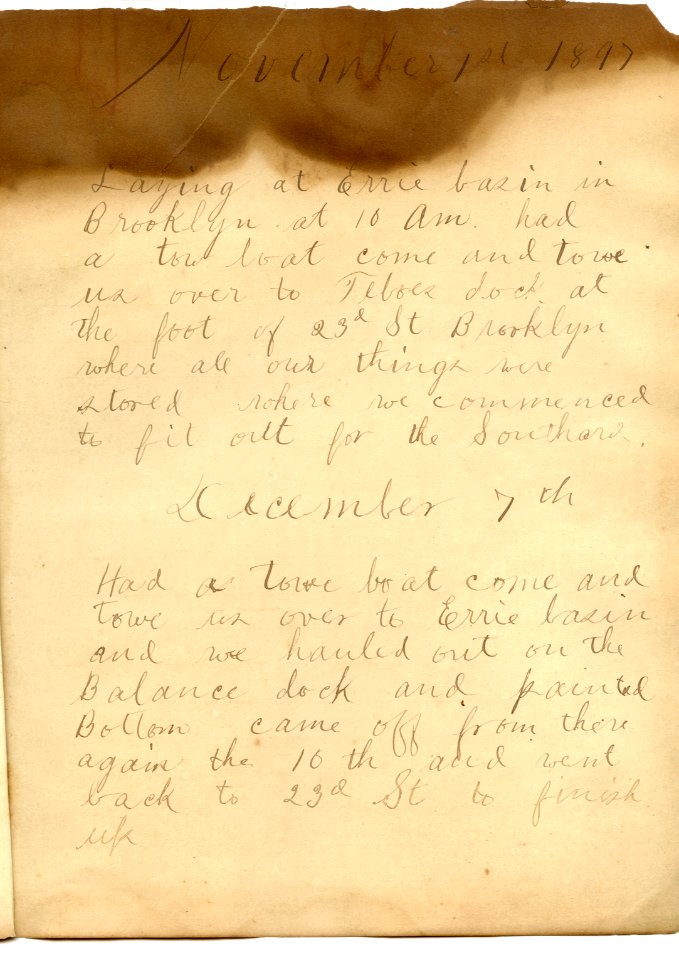 November 1st 1897
Laying at Errie basin in
Brooklyn at 10 Am. had
a tow boat come and towe
us over to Teboes dock at
the foot of 23d St Brooklyn
where all our things were
stored where we commenced
to fit outt for the Southard.
December 7th
Had a towe boat come and
towe us over to Errie basin
and we hauled out on the
Balance dock and painted
Bottom came off from there
again the 10th and went
back to 23d St to finish
up